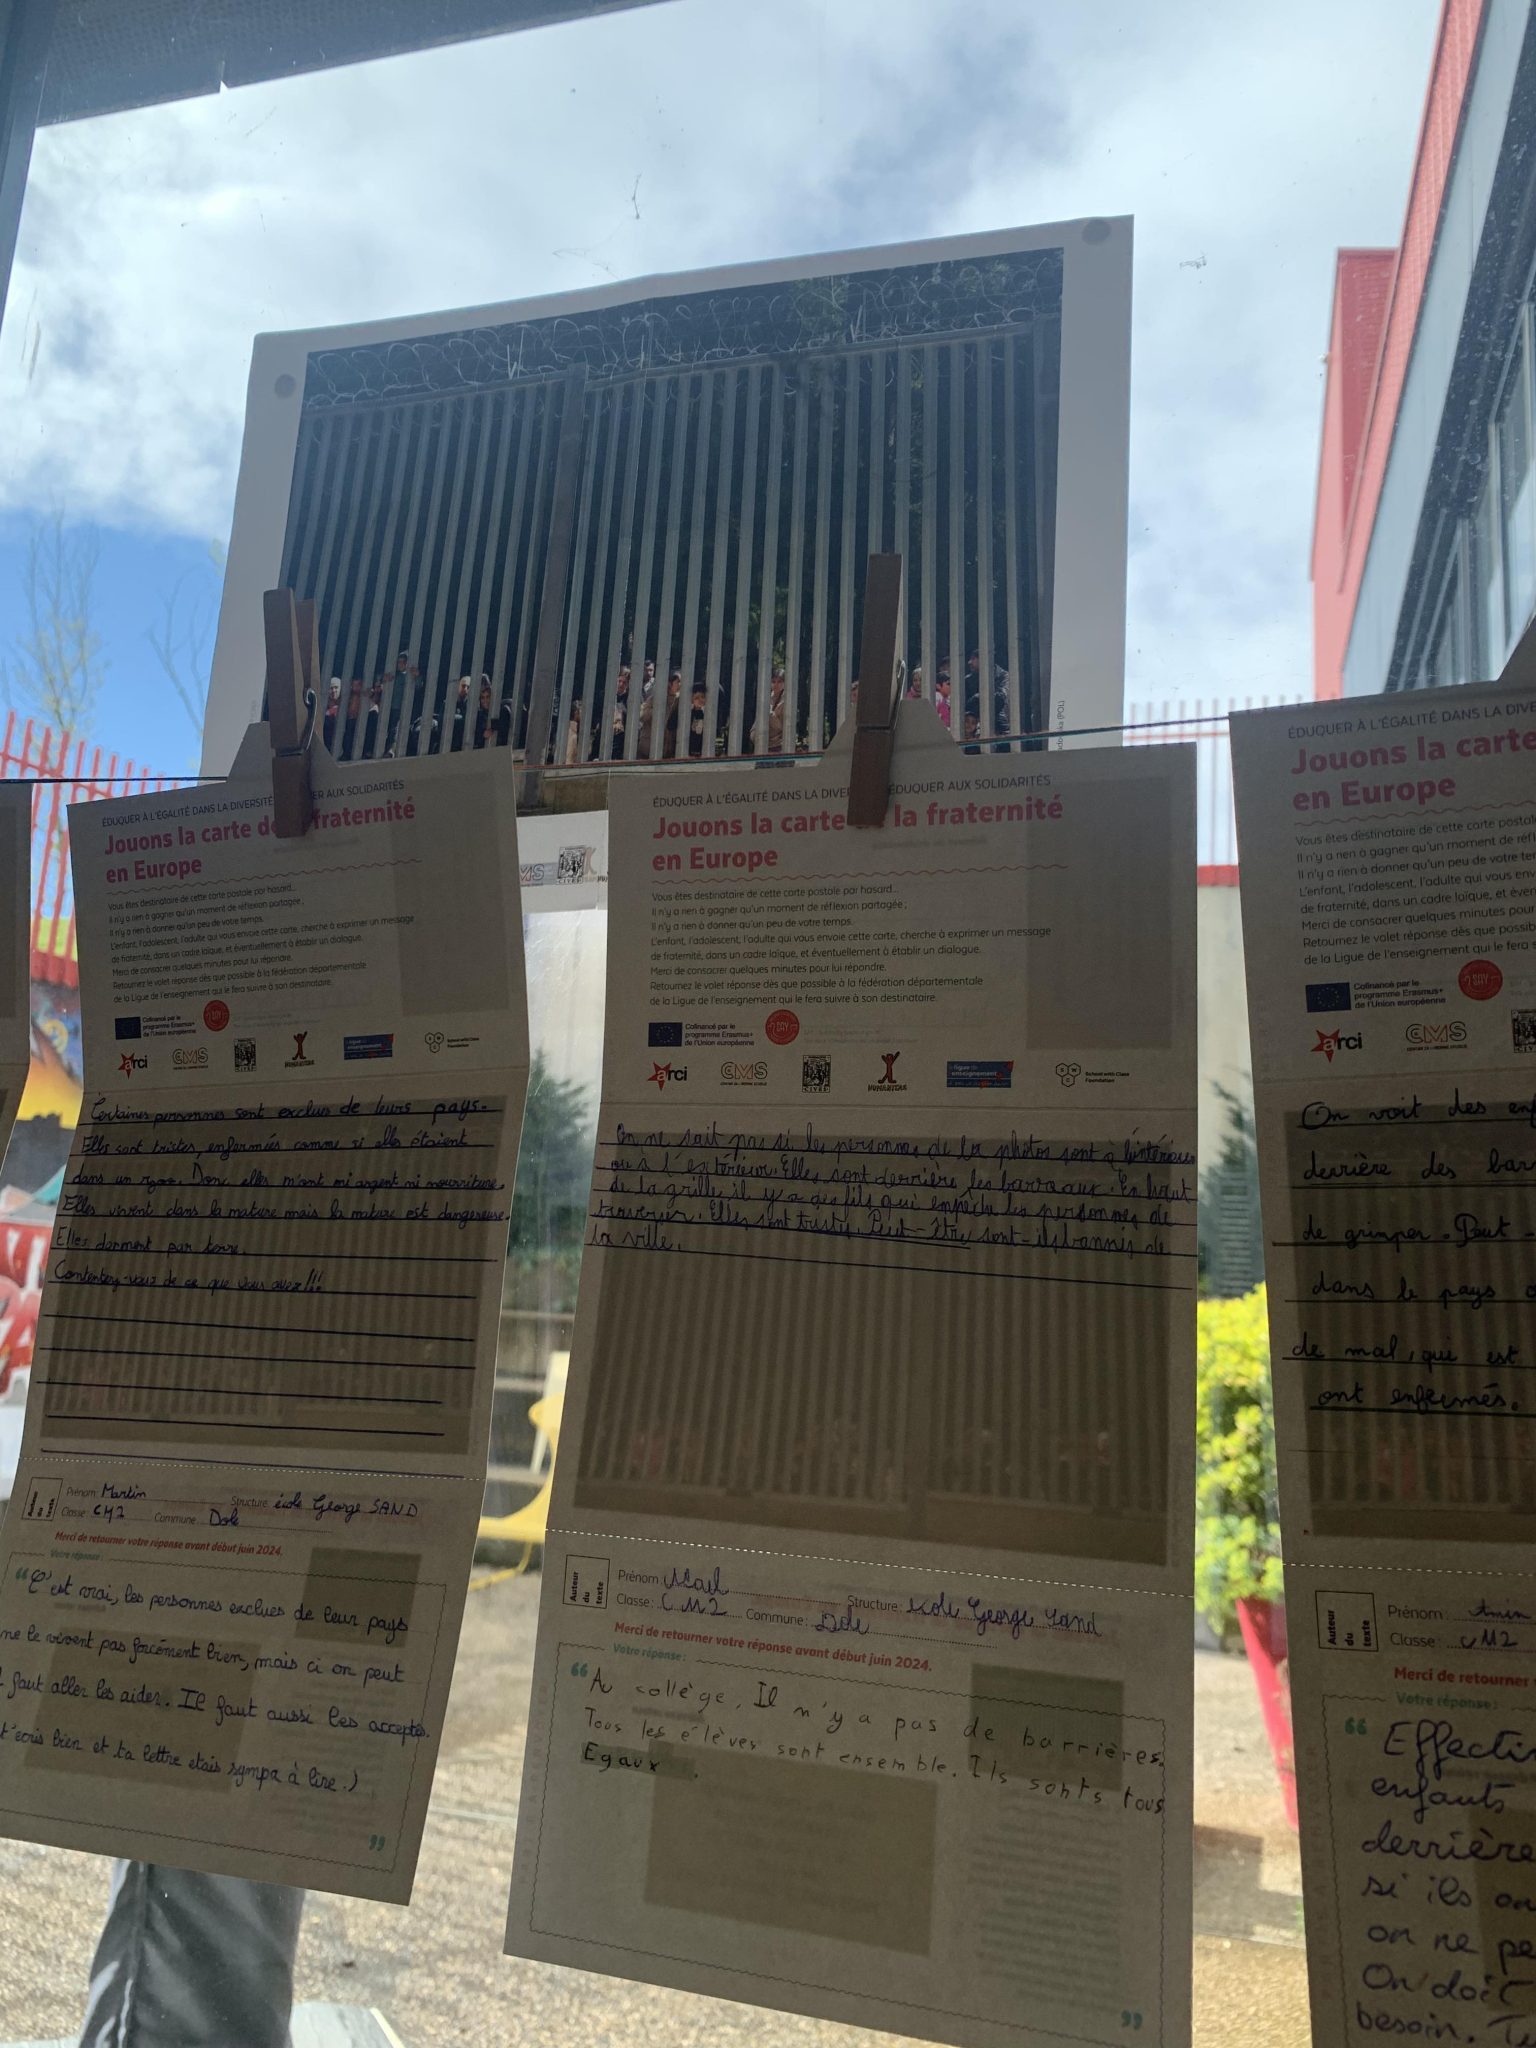 ÉDUQUER À L'ÉGALITÉ DANS LA DIVERSITÉ ER AUX SOLIDARITÉS
Jouons la carte de fraternité
en Europe
Vous êtes destinataire de cette carte postale par hasard...
Il n'y a rien à gagner qu'un moment de réflexion partagée ;
Il n'y a rien à donner qu'un peu de votre temps.
L'enfant, l'adolescent, l'adulte qui vous envoie cette carte, cherche à exprimer un message
de fraternité, dans un cadre laïque, et éventuellement à établir un dialogue.
Merci de consacrer quelques minutes pour lui répondre.
Retournez le volet réponse dès que possible à la fédération départementale
de la Ligue de l'enseignement qui le fera suivre à son destinataire.
Cofinancé par le
programme Erasmus+
de l'Union européenne
arci
CMS
HUMANITAS
la ligue de
l'enseignement
School with Class
Foundation
Certaines personnes sont exclus de leurs pays.
Elles sont tristes, enfermées comme si elles étaient
dans un Donc elles n'ont ni argent ni nourriture.
Elles vivent dans la nature mais la nature est dangereuse.
Elles dorment par terre.
Contentez-vous de ce que vous avez!!!
Auteur
du
texte
Prénom : Martin Structure : école George SAND
Classe : CM2 Commune : Dole
Merci de retourner votre réponse avant début juin 2024.
Votre réponse :
“C'est vrai, les personnes exclues de leur pays
ne le vivent pas forcément bien, mais ci on peut
faut aller les aider. Il faut aussi les accepté.
t'écris bien et ta lettre etais sympa à lire.)
”
ÉDUQUER À L'ÉGALITÉ DANS LA DIVER ÉDUQUER AUX SOLIDARITÉS
Jouons la carte la fraternité
en Europe
Vous êtes destinataire de cette carte postale par hasard...
Il n'y a rien à gagner qu'un moment de réflexion partagée ;
Il n'y a rien à donner qu'un peu de votre temps.
L'enfant, l'adolescent, l'adulte qui vous envoie cette carte, cherche à exprimer un message
de fraternité, dans un cadre laïque, et éventuellement à établir un dialogue.
Merci de consacrer quelques minutes pour lui répondre.
Retournez le volet réponse dès que possible à la fédération départementale
de la Ligue de l'enseignement qui le fera suivre à son destinataire.
Cofinancé par le
programme Erasmus+
de l'Union européenne
arci
CMS
CIVEP
HUMANITAS
la ligue de
l'enseignement
School with Class
Foundation
On ne sait pas si les personnes de la photos sont à l'intérieur
ou à l'extérieur. Elles sont derrière les barreaux. En haut
de la grille, il y a des fils qui empêche les personnes de
traverser. Elles sont tristes. Peut-être sont-ils bannis de
la ville.
Auteur
du
texte
Prénom : Structure : école George Sand
Classe : CM2 Commune : Dole
Merci de retourner votre réponse avant début juin 2024.
Votre réponse :
“ Au collège, Il n'y a pas de barrières.
Tous les élèves sont ensemble. Ils sonts tous
Egaux.
”
ÉDUQUER À L'ÉGALITÉ DANS LA DIVER
Jouons la carte
en Europe
Vous êtes destinataire de cette carte postale
Il n'y a rien à gagner qu'un moment de réfle
Il n'y a rien à donner qu'un peu de votre tem
L'enfant, l'adolescent, l'adulte qui vous env
de fraternité, dans un cadre laïque, et éven
Merci de consacrer quelques minutes pour
Retournez le volet réponse dès que possib
de la Ligue de l'enseignement qui le fera s
Cofinancé par le
programme Erasmus+
de l'Union européenne
arci
CMS
On voit des enf
derrière des bar
de grimper. Peut-
dans le pays
de mal, qui est
ont enfermés.
Auteur
du
texte
Prénom : Amin
Classe : CM2
Merci de retourner
Votre réponse :
“ Effectiv
enfants
derrière
si ils on
on ne pe
On doit
besoin. T